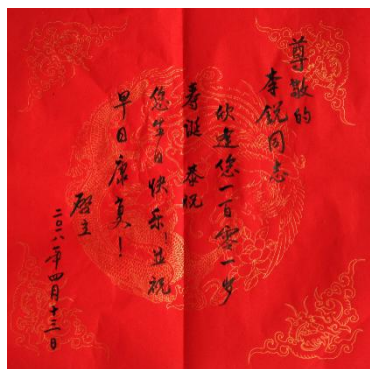 尊敬的
李锐同志
欣逢您一百零一岁
寿诞 恭祝
您生日快乐！并祝
早日康复！
二〇一八年四月十三日